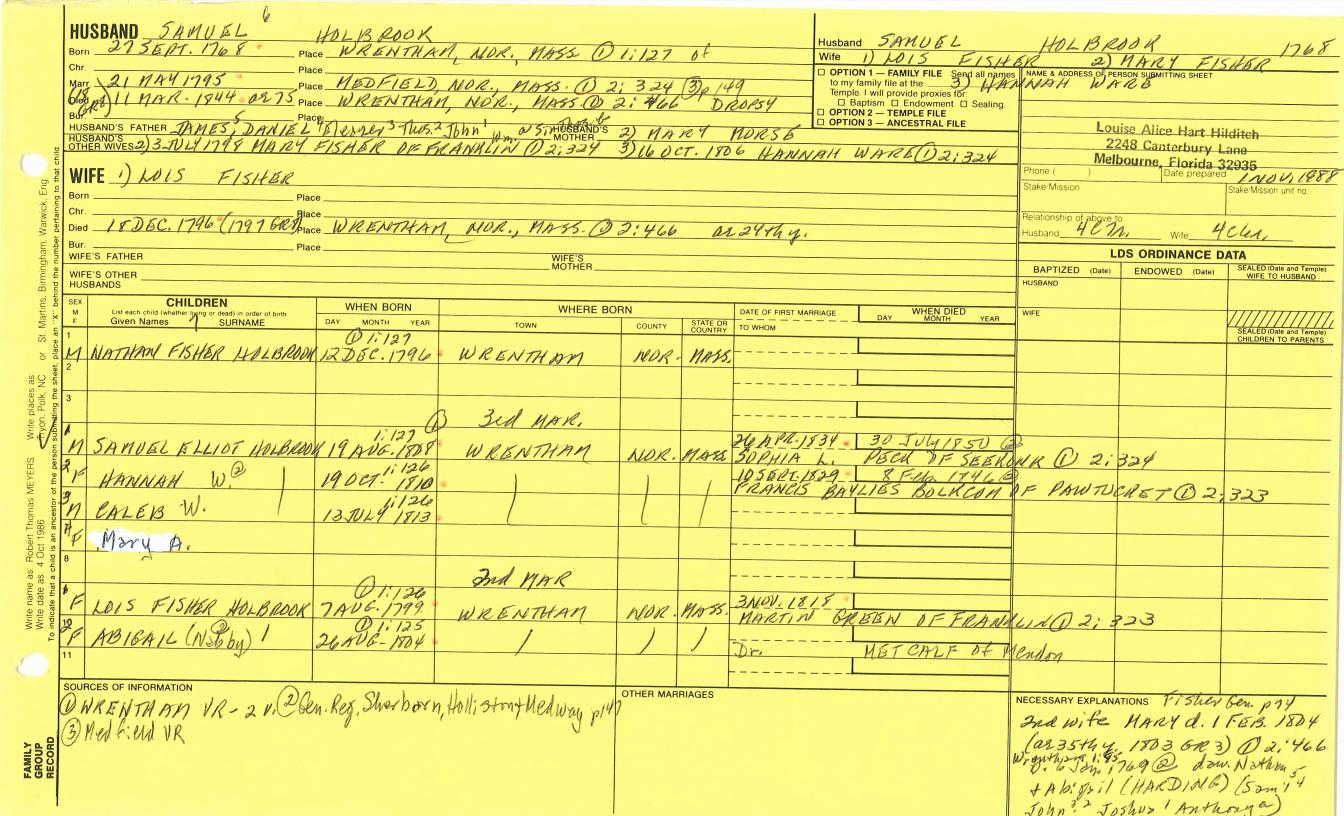 6
HUSBAND SAMUEL HOLBROOK
Born 27 SEPT. 1768 Place WRENTHAM, NOR. MASS ① 1:127 of
Chr. Place
Marr. 21 MAY 1795 Place MEDFIELD, NOR., MASS. ① 2; 324 ③ p149
Died 11 MAR. 1844 ae 75 Place WRENTHAM, NOR., MASS ① 2: 466 DROPSY
Bur. Place
HUSBAND'S FATHER JAMES,5 DANIEL4 Eleazer3 Thos.2 John1 HUSBAND'S MOTHER 2) MARY MORSE
HUSBAND'S OTHER WIVES 2) 3 JULY 1798 MARY FISHER OF FRANKLIN ① 2; 324 3) 16 OCT. 1806 HANNAH WARE ① 2; 324
Husband SAMUEL HOLBROOK 1768
Wife 1) LOIS FISHER 2) MARY FISHER
3) HANNAH WARE
☐ OPTION 1 — FAMILY FILE Send all names
to my family file at the
Temple. I will provide proxies for:
☐ Baptism ☐ Endowment ☐ Sealing.
☐ OPTION 2 — TEMPLE FILE
☐ OPTION 3 — ANCESTRAL FILE
NAME & ADDRESS OF PERSON SUBMITTING SHEET
Louise Alice Hart Hilditch
2248 Canterbury Lane
Melbourne, Florida 32935
Phone ( ) Date prepared 1 NOV. 1988
Stake/Mission Stake/Mission unit no.
Relationship of above to
Husband Wife
WIFE 1) LOIS FISHER
Born Place
Chr. Place
Died 18 DEC. 1796 (1797 GR3) Place WRENTHAM, NOR., MASS. ① 2:466 ae 24th y.
Bur. Place
WIFE'S FATHER WIFE'S MOTHER
WIFE'S OTHER HUSBANDS
LDS ORDINANCE DATA
BAPTIZED (Date) ENDOWED (Date) SEALED (Date and Temple) WIFE TO HUSBAND
HUSBAND
WIFE
SEALED (Date and Temple) CHILDREN TO PARENTS
SEX M F
CHILDREN
List each child (whether living or dead) in order of birth
Given Names SURNAME
WHEN BORN
DAY MONTH YEAR
WHERE BORN
TOWN COUNTY STATE OR COUNTRY
DATE OF FIRST MARRIAGE
TO WHOM
WHEN DIED
DAY MONTH YEAR
1 ① 1:127
M NATHAN FISHER HOLBROOK 12 DEC. 1796 WRENTHAM NOR. MASS.
2
3
① 3rd MAR.
1:127 26 APR. 1834 30 JULY 1850 ②
M SAMUEL ELLIOT HOLBROOK 19 AUG. 1808 WRENTHAM NOR. MASS SOPHIA L. PECK OF SEEKONK ① 2; 324
2 1:126 10 SEPT. 1829 8 Feb. 1846 ②
F HANNAH W. ② 19 OCT. 1810 FRANCIS BAYLIES BOLKCOM OF PAWTUCKET ① 2; 323
3 1:126
M CALEB W. 13 JULY 1813
4
F Mary A.
8
2nd MAR
① 1:126 3 NOV. 1818
F LOIS FISHER HOLBROOK 7 AUG. 1799 WRENTHAM NOR. MASS. MARTIN GREEN OF FRANKLIN ① 2; 323
① 1:125
F ABIGAIL (Nabby) ② 26 AUG. 1804 Dr. METCALF of Mendon
11
SOURCES OF INFORMATION
① WRENTHAM VR - 2 v. ② Gen. Reg. Sherborn, Holliston + Medway p147
③ Medfield VR
OTHER MARRIAGES
NECESSARY EXPLANATIONS Fisher Gen. p74
2nd wife MARY d. 1 FEB. 1804
(ae 35th y. 1803 GR 3) ① 2:466
b. 6 Jan. 1769 ② dau. Nathan
+ Abigail (HARDING) (Sam'l
John Joshua Anthony)
Write name as: Robert Thomas MEYERS Write places as: Tryon, Polk, NC or St. Martins, Birmingham, Warwick, Eng
Write date as: 4 Oct 1986
To indicate that a child is an ancestor of the person submitting the sheet, place an "X" behind the number pertaining to that child
FAMILY
GROUP
RECORD